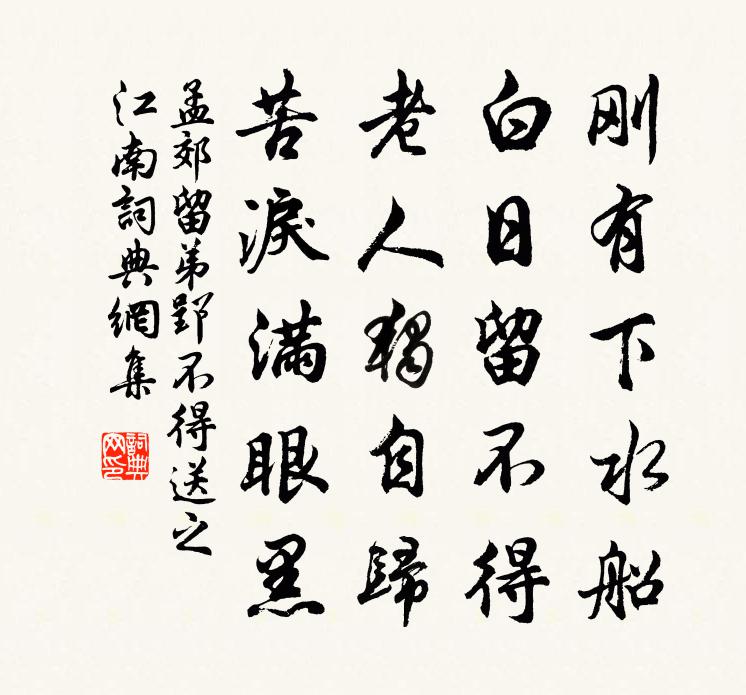 刚有下水船
白日留不得
老人獨自歸
苦淚滿眼黑
孟郊留弟郢不得送之
江南詞典網集
詞典網印